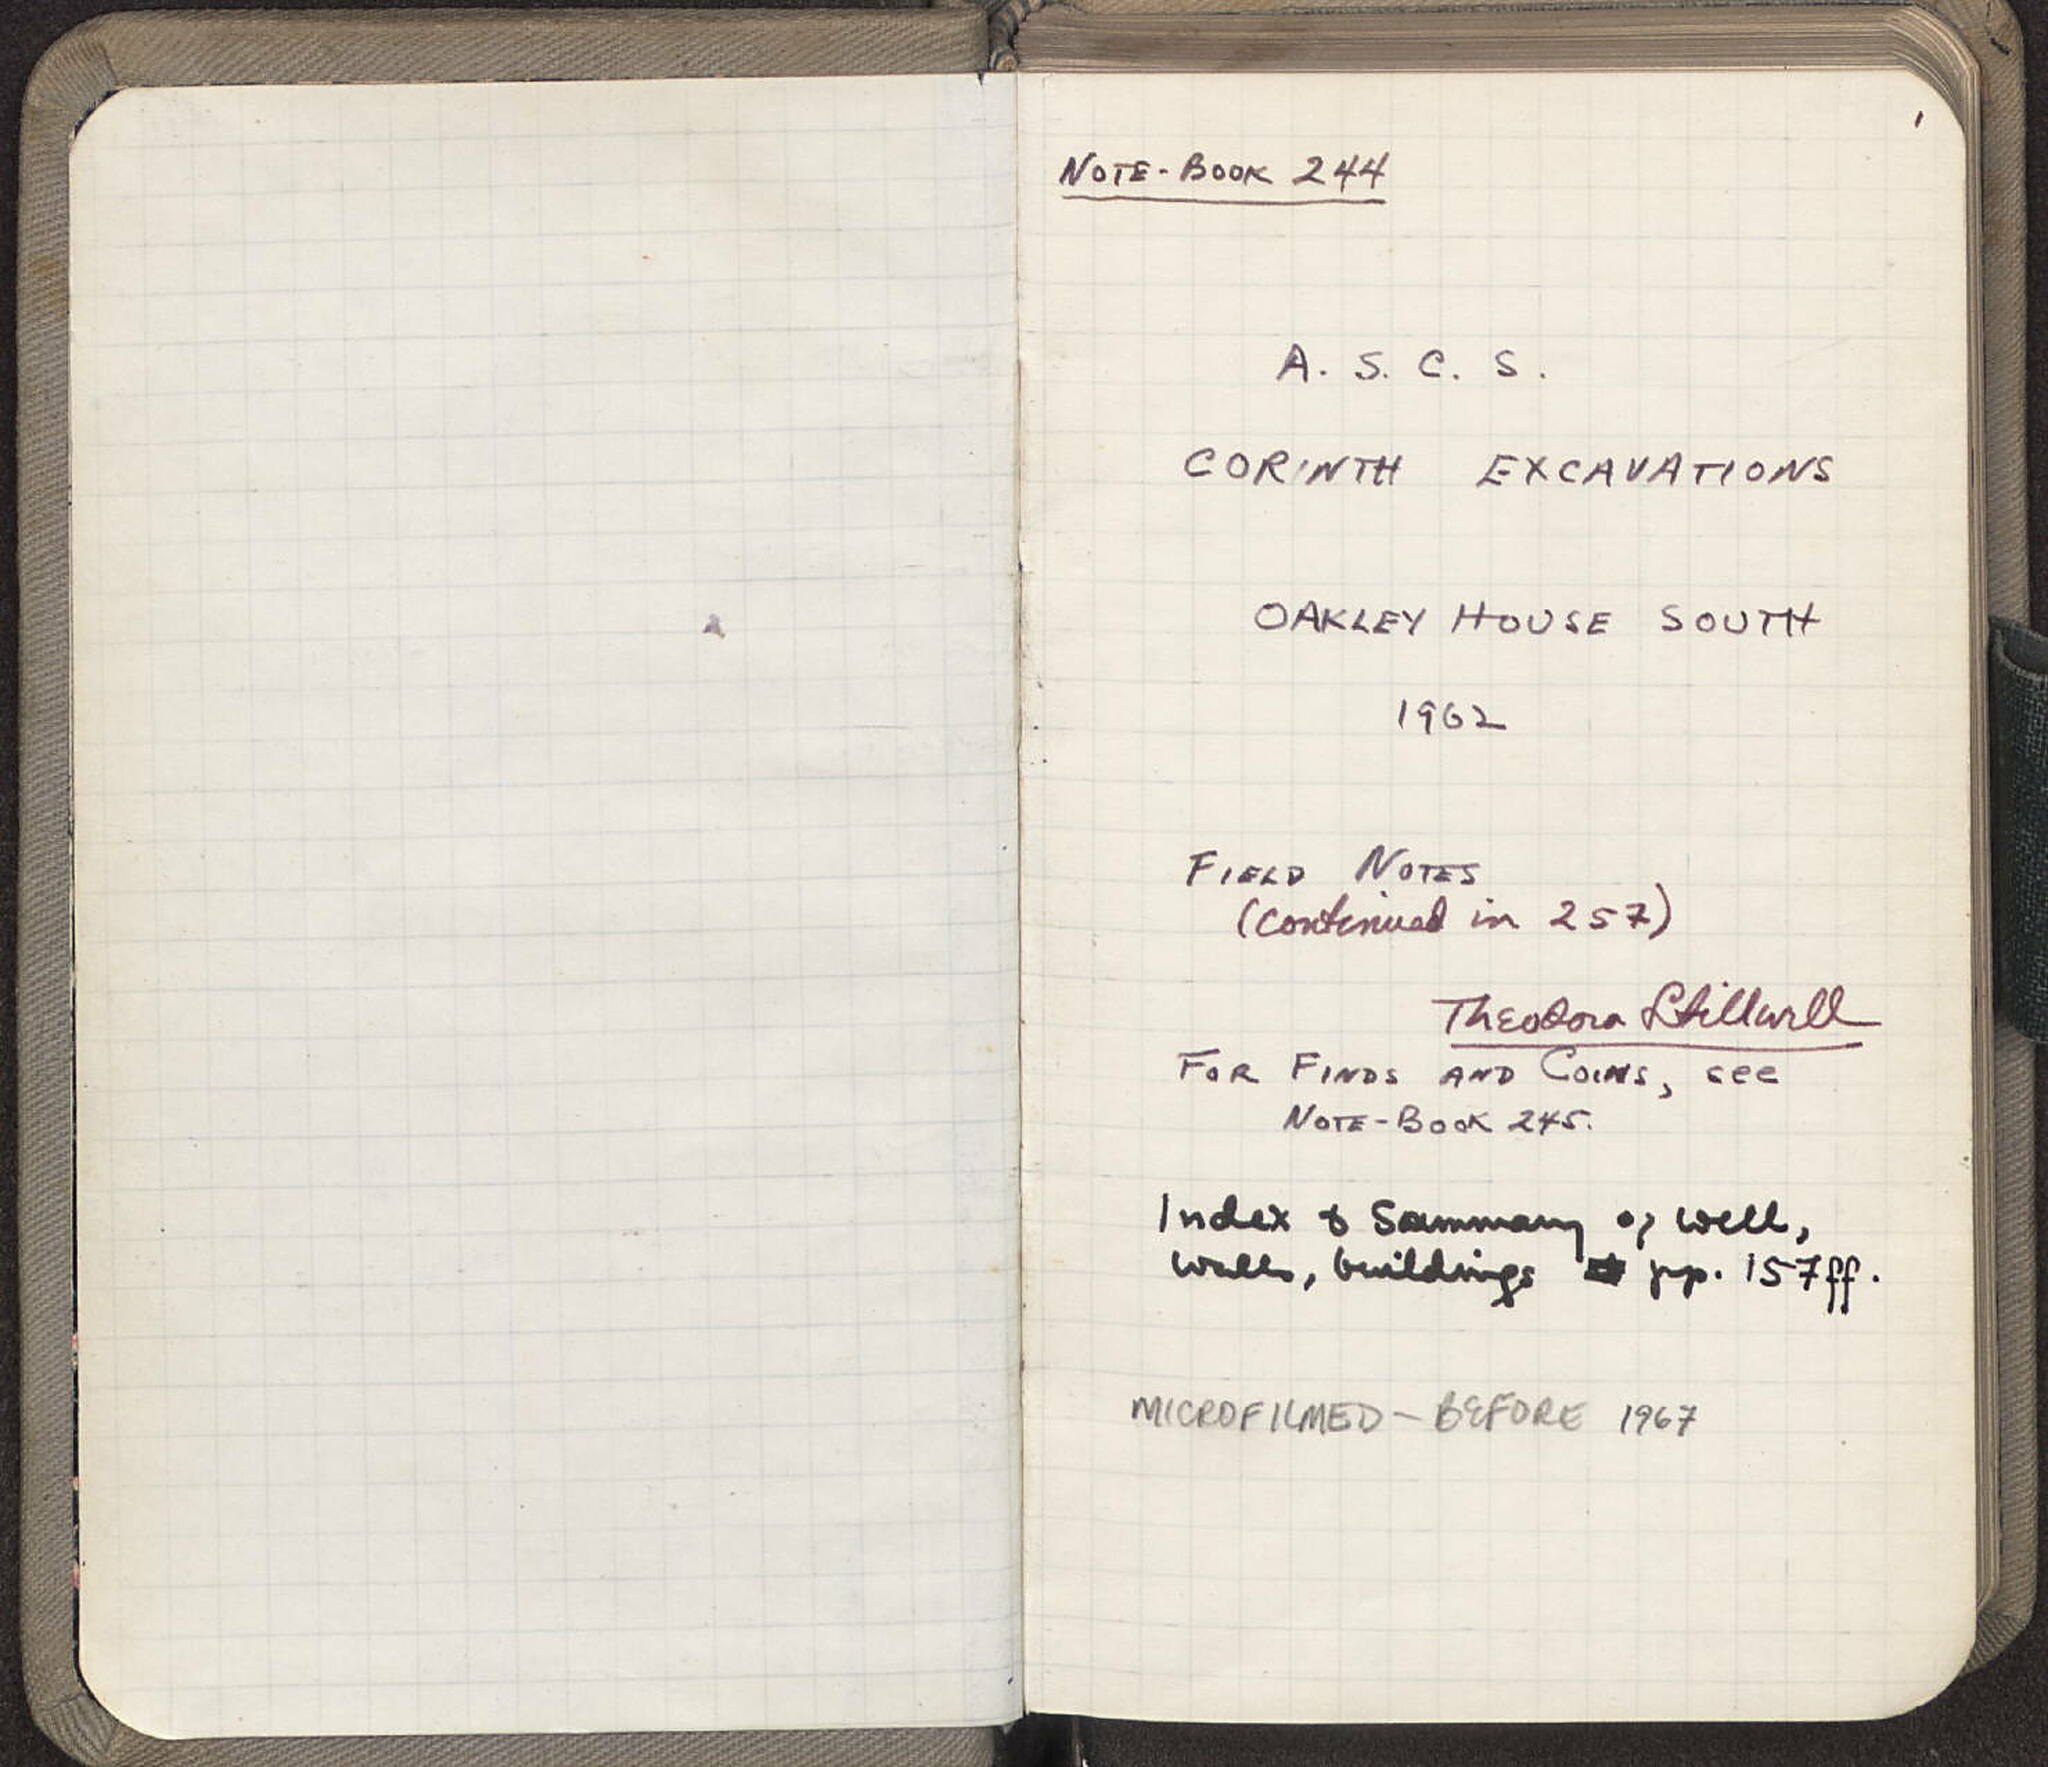 1
NOTE-BOOK 244
A. S. C. S.
CORINTH EXCAVATIONS
OAKLEY HOUSE SOUTH
1962
FIELD NOTES
(continued in 257)
Theodora Stillwell
FOR FINDS AND COINS, see
NOTE-BOOK 245.
Index & Summary of well,
walls, buildings pp. 157ff.
MICROFILMED - BEFORE 1967